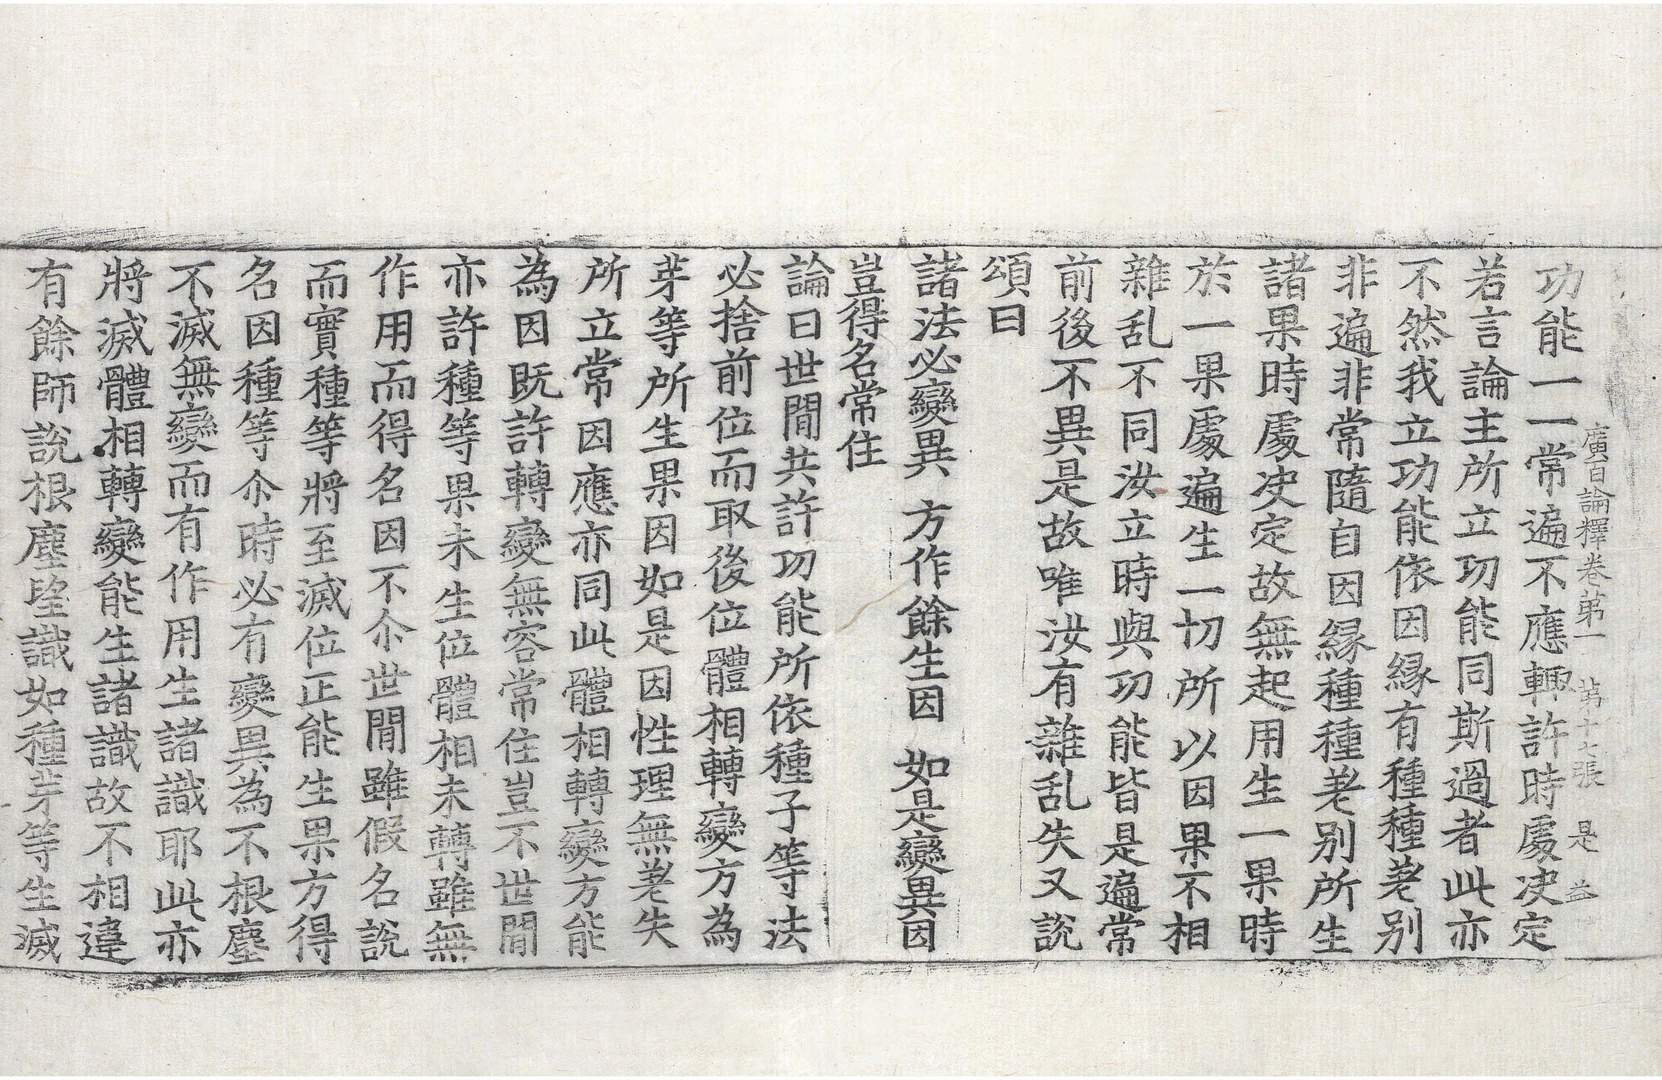 廣百論釋卷苐一　苐十七張　是　益
功能一一常遍不應輙許時處决定
若言論主所立功能同斯過者此亦
不然我立功能依因縁有種種差别
非遍非常隨自因縁種種差别所生
諸果時處决定故無起用生一果時
於一果處遍生一切所以因果不相
雜乱不同汝立時與功能皆是遍常
前後不異是故唯汝有雜乱失又説
頌曰
諸法必變異　方作餘生因　如是變異因
豈得名常住
論曰世間共許功能所依種子等法
必捨前位而取後位體相轉變方為
芽等所生果因如是因性理無差失
所立常因應亦同此體相轉變方能
為因既許轉變無容常住豈不世間
亦許種等果未生位體相未轉雖無
作用而得名因不尒世間雖假名說
而實種等將至滅位正能生果方得
名因種等尒時必有變異為不根塵
不滅無變而有作用生諸識耶此亦
將滅體相轉變能生諸識故不相違
有餘師說根塵望識如種芽等生滅